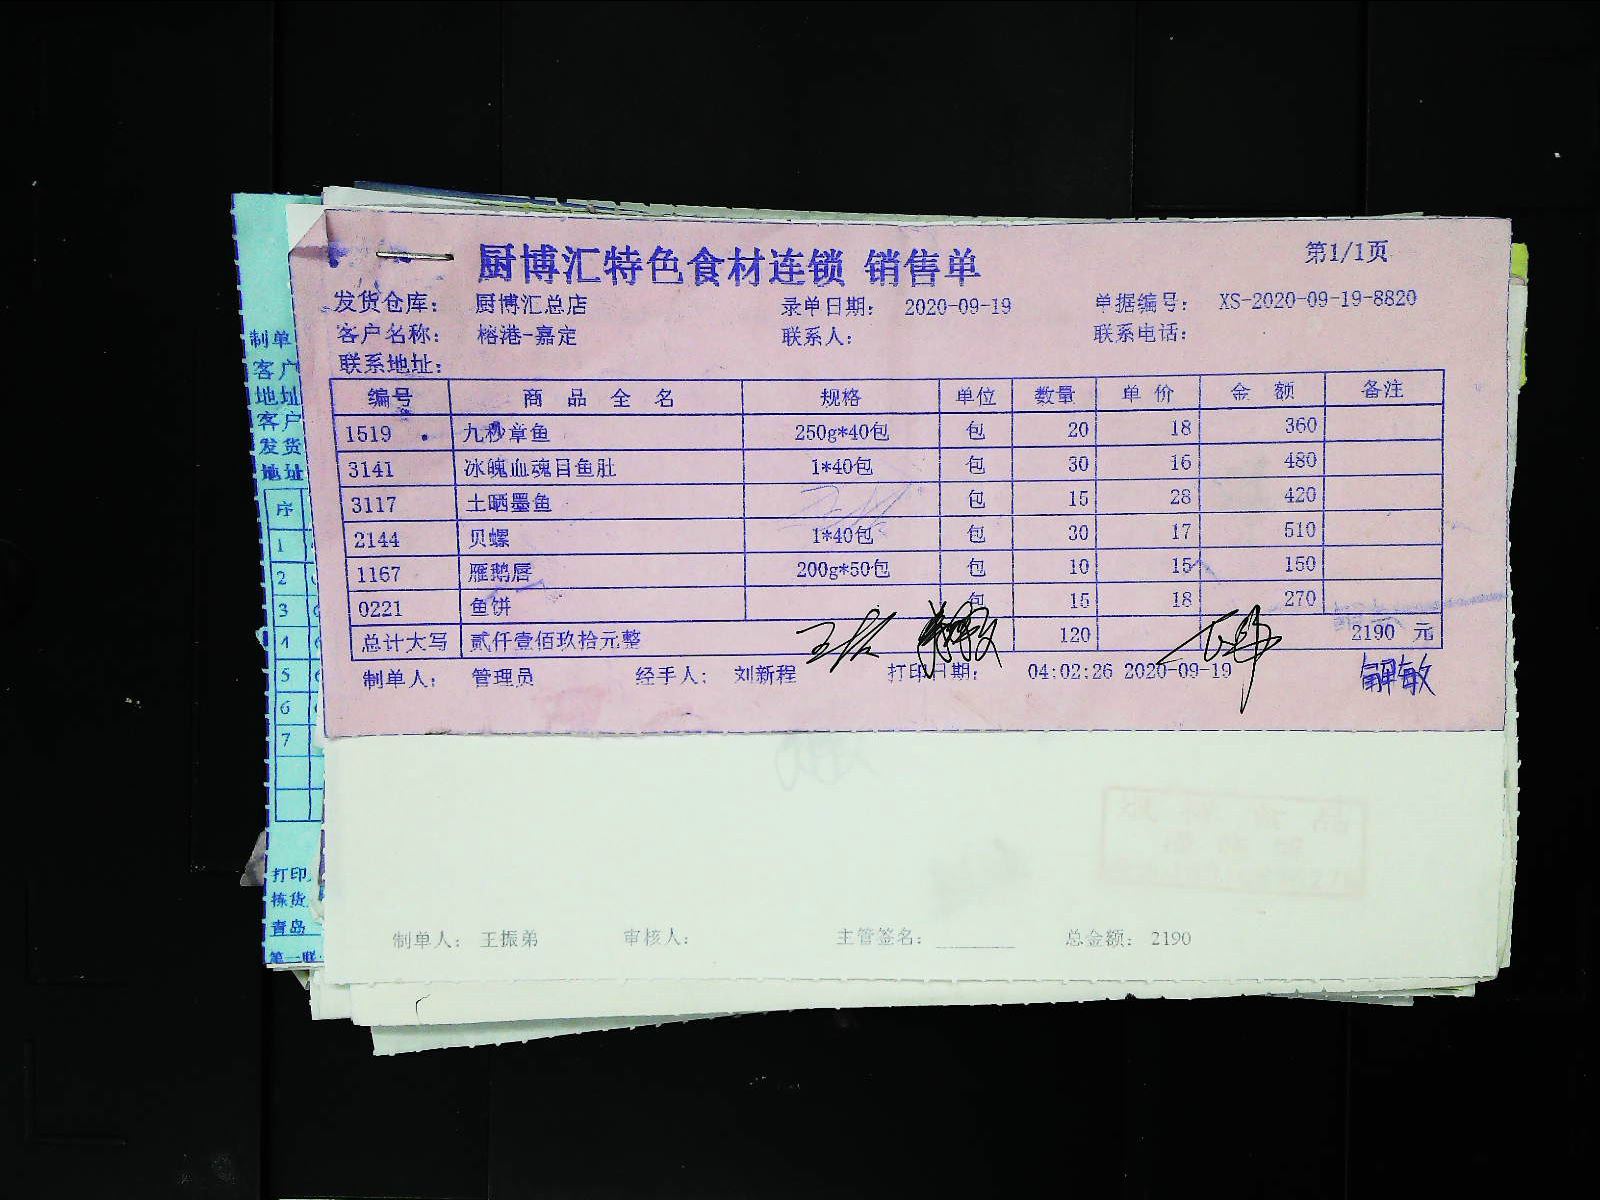 厨博汇特色食材连锁 销售单
第1/1页
发货仓库： 厨博汇总店 录单日期： 2020-09-19 单据编号： XS-2020-09-19-8820
客户名称： 榕港-嘉定 联系人： 联系电话：
联系地址：
编号 商品全名 规格 单位 数量 单价 金额 备注
1519 九秒章鱼 250g*40包 包 20 18 360
3141 冰魄血魂目鱼肚 1*40包 包 30 16 480
3117 土晒墨鱼 包 15 28 420
2144 贝螺 1*40包 包 30 17 510
1167 雁鹅唇 200g*50包 包 10 15 150
0221 鱼饼 包 15 18 270
总计大写 贰仟壹佰玖拾元整 120 2190 元
制单人： 管理员 经手人： 刘新程 打印日期： 04:02:26 2020-09-19
解敏
制单人： 王振弟 审核人： 主管签名： 总金额： 2190
制单
客户
地址
客户
发货
地址
序
1
2
3
4
5
6
7
打印
拣货
青岛
第一联